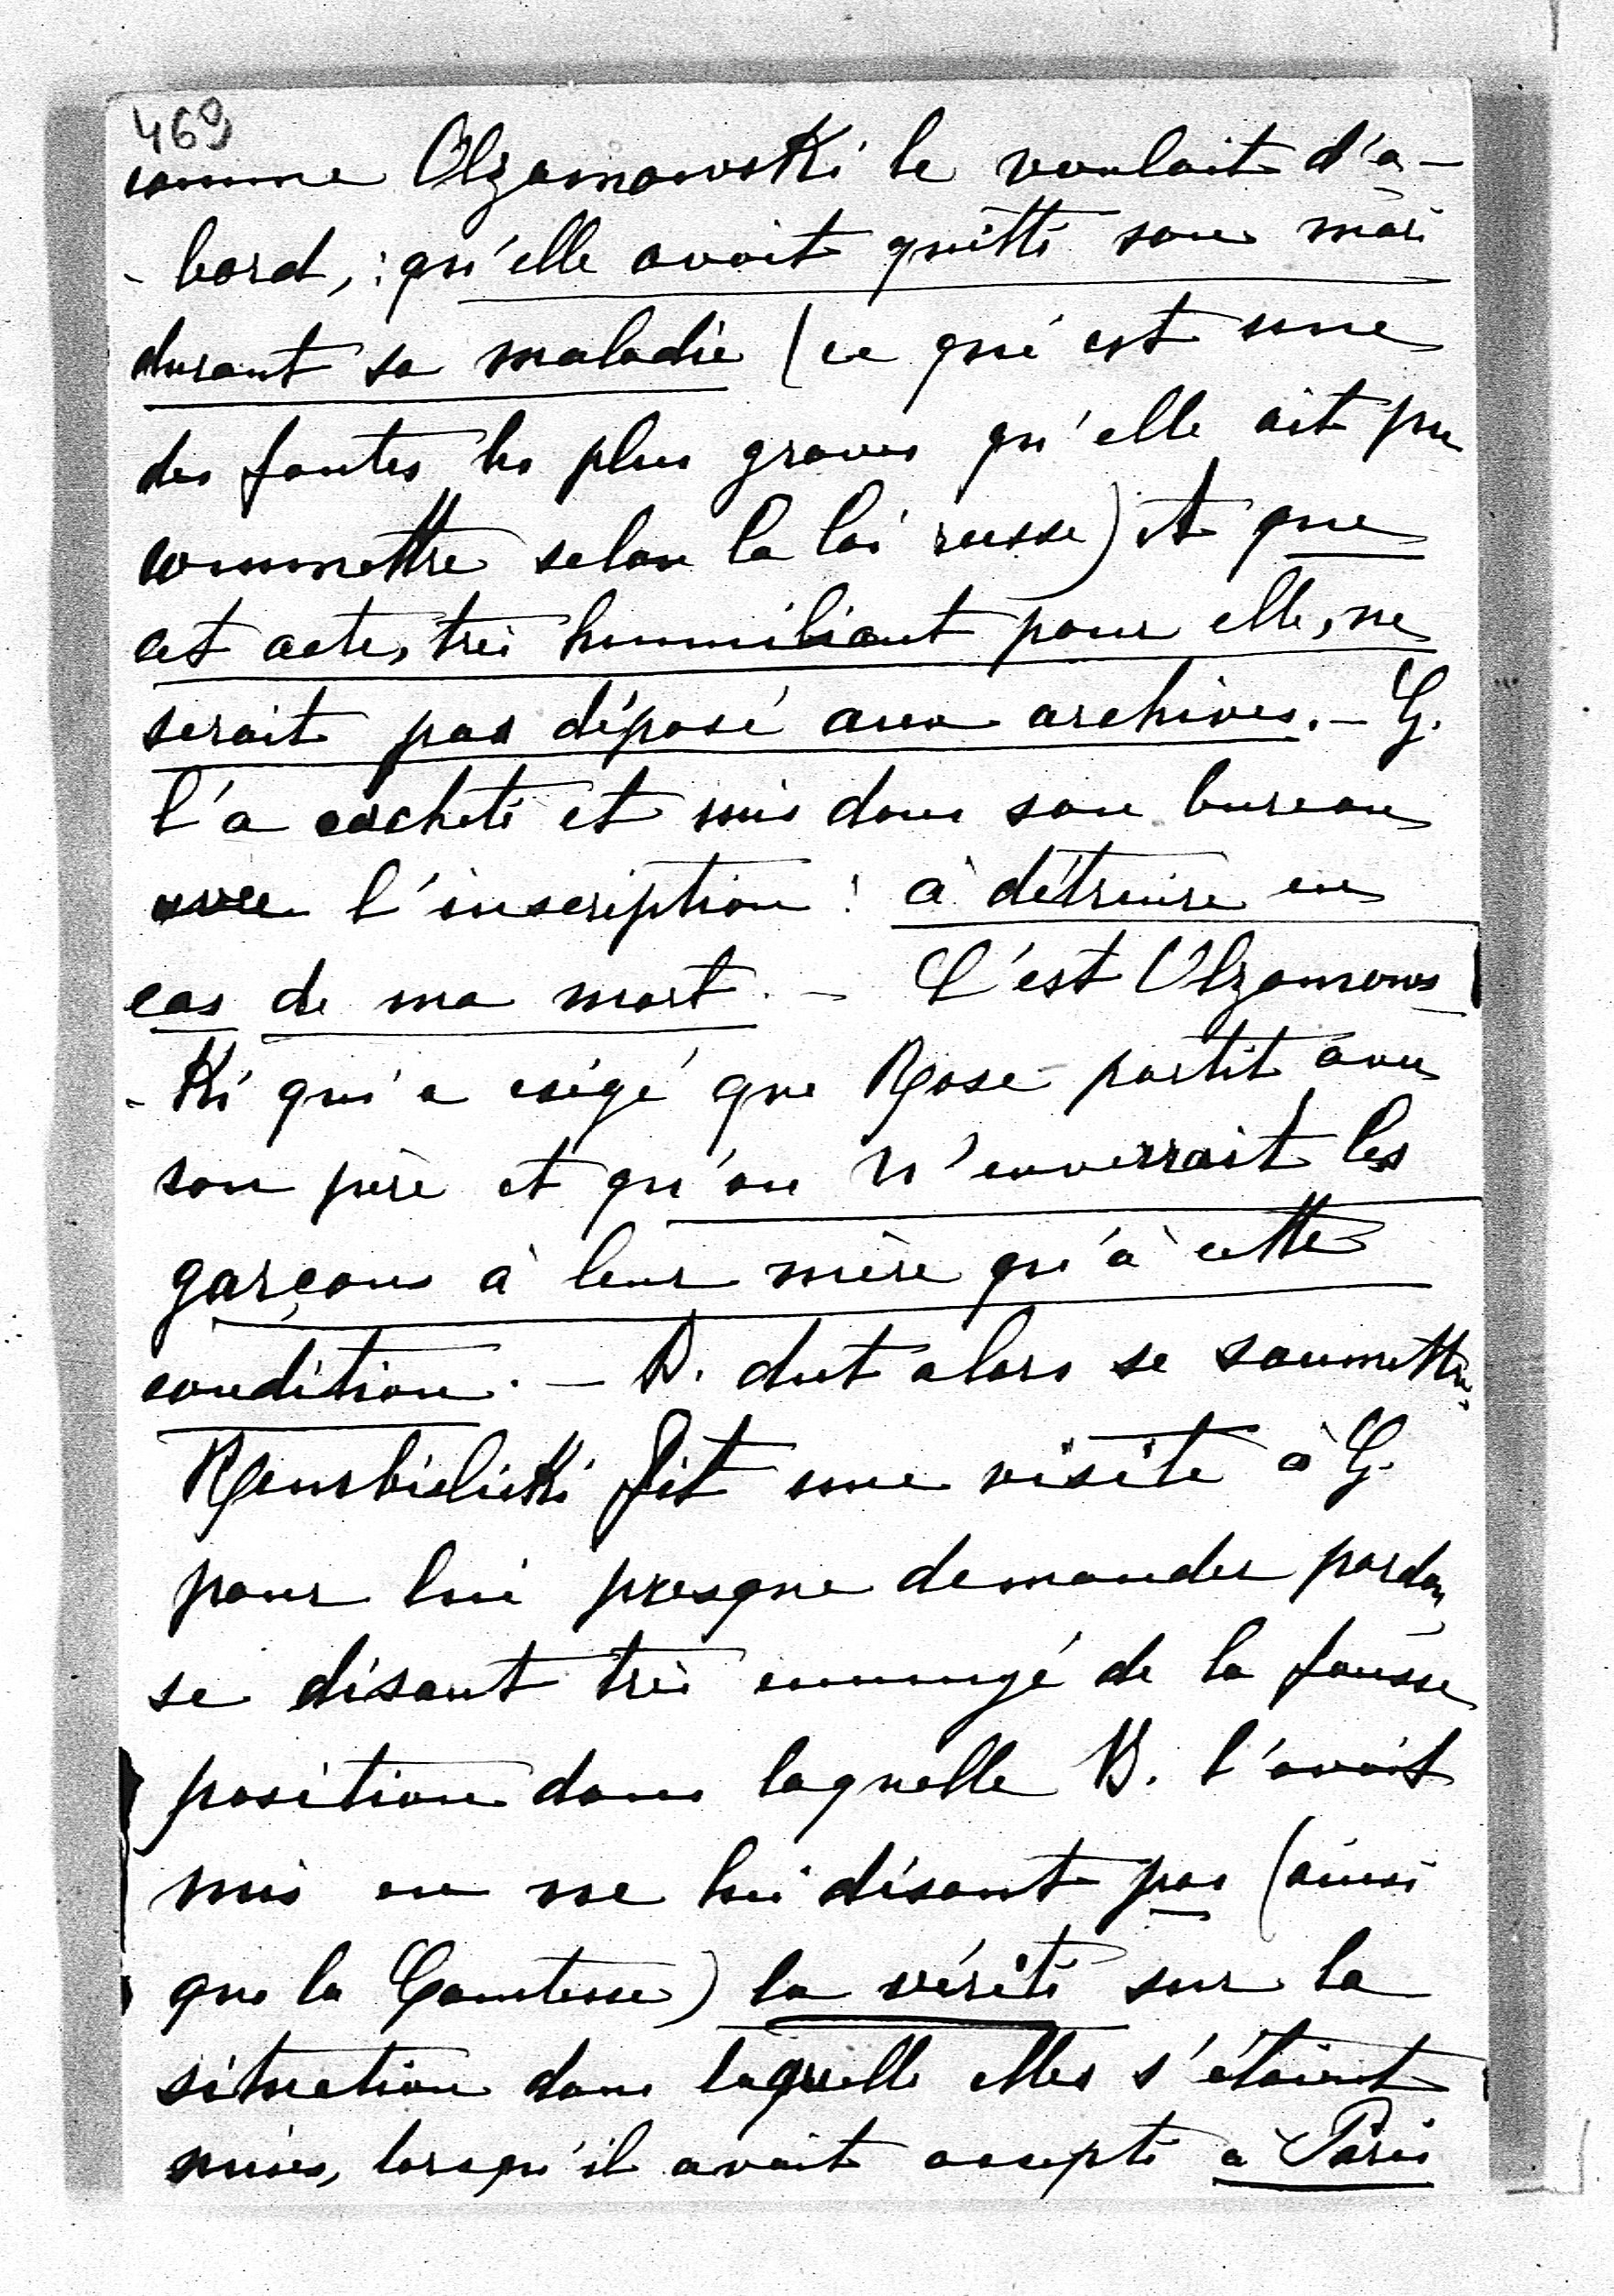 469
comme Olzamowski le voulait d'a-
- bord, : qu'elle avait quitté son mari
durant sa maladie (ce qui est une
des fautes les plus graves qu'elle ait pu
commettre selon la loi russe) et que
cet acte, très humiliant pour elle, ne
serait pas déposé aux archives. – G.
l'a cacheté et mis dans son bureau
avec l'inscription : à détruire en
cas de ma mort. – C'est Olzamows
- Ki qui a exigé que Rose partit avec
son père et qu'on n'enverrait les
garçons à leur mère qu'à cette
condition. – B. dut alors se soumettre.
fit une visite à G.
pour lui presque demander pardon,
se disant très ennuyé de la fausse
position dans laquelle B. l'avait
mis en ne lui disant pas (ainsi
que la Comtesse) la vérité sur la
situation dans laquelle elles s'étaient
mises, lorsqu'il avait accepté à Paris